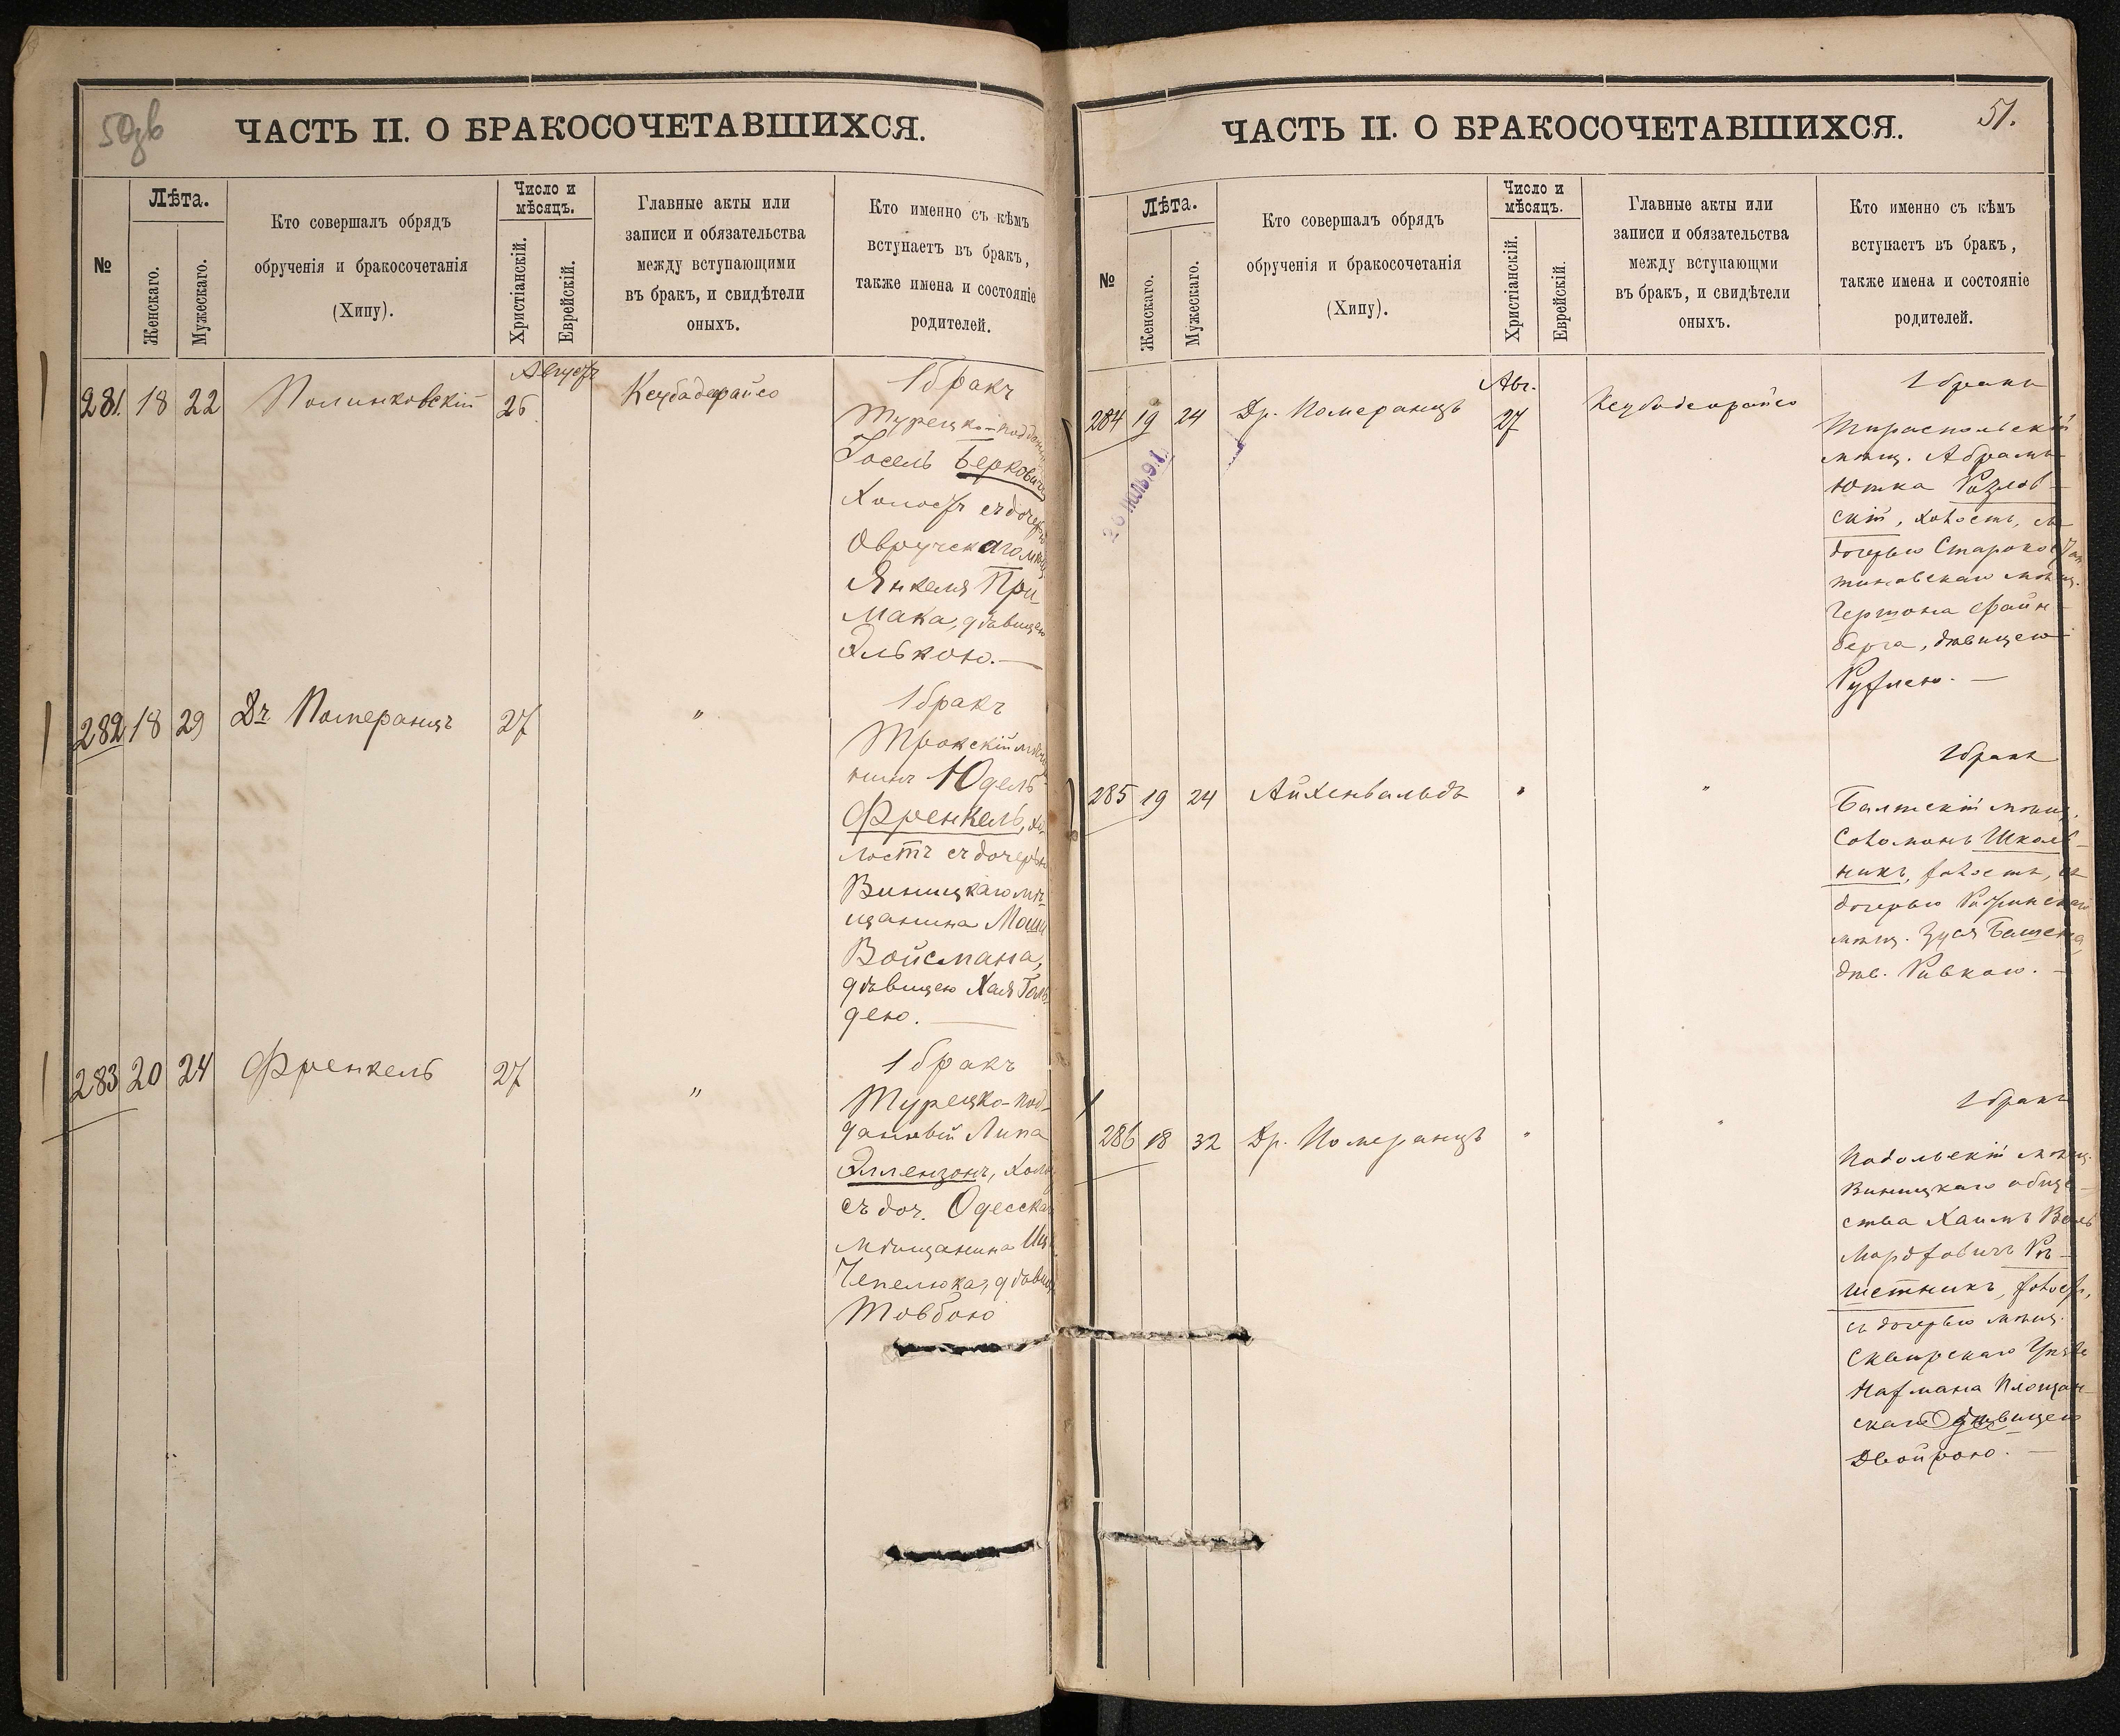 50об
ЧАСТЬ II. О БРАКОСОЧЕТАВШИХСЯ.
№
Лѣта.
Женскаго.
Мужескаго.
Кто совершалъ обрядъ
обрученія и бракосочетанія
(Хипу).
Число и
мѣсяцъ.
Христіанскій.
Еврейскій.
Главные акты или
записи и обязательства
между вступающими
въ бракъ, и свидѣтели
оныхъ.
Кто именно съ кѣмъ
вступаетъ въ бракъ,
также имена и состояніе
родителей.
Августъ
281. 18 22 Полинковскій 26
1 бракъ
Турецко-подданный
Іосель Берковичъ
холостъ съ дочерью
Овручскаго мѣщ
Янкеля При-
мака, дѣвицею
Элькою.—
282 18 29 Дръ Померанцъ 27 "
1 бракъ
Трокскій мѣща-
нинъ Юдель
Френкель, хо-
лостъ съ дочерью
Виницкаго мѣ-
щанина Мошки
Войсмана,
дѣвицею Хая Голь-
дею. —
283 20 24 Френкель 27 "
1 бракъ
Турецко-под-
данный Липа
Эллензонъ, холос
съ доч. Одесскаго
мѣщанина
Чепелюка, дѣвиц
Товбою
51.
ЧАСТЬ II. О БРАКОСОЧЕТАВШИХСЯ.
№
Лѣта.
Женскаго.
Мужескаго.
Кто совершалъ обрядъ
обрученія и бракосочетанія
(Хипу).
Число и
мѣсяцъ.
Христіанскій.
Еврейскій.
Главные акты или
записи и обязательства
между вступающми
въ бракъ, и свидѣтели
оныхъ.
Кто именно съ кѣмъ
вступаетъ въ бракъ,
также имена и состояніе
родителей.
Авг.
284 19 24 Др. Померанцъ 27
1 бракъ
Тираспольскій
мѣщ. Абрамъ
Ютка Козлов-
скій, холостъ, съ
дочерью Старокостан-
тиновскаго мѣщ.
Гершона Файн-
берга, дѣвицею
Рухлею. —
285 19 24 Айхенвальдъ " "
1 бракъ
Балтскій мѣщ.
Соломонъ Школь-
никъ, холостъ, съ
дочерью
мѣщ. Зуся
дѣв. Ривкою. —
286 18 32 Др. Померанцъ " "
1 бракъ
Подольскій мѣщ.
Виницкаго обще-
ства Хаимъ Вель
Мордховичъ Рѣ-
шетникъ, холост,
съ дочерью мѣщ.
Сквирскаго Уѣзда
Нахмана Площан-
скаго дѣвицею
Двойрою. —